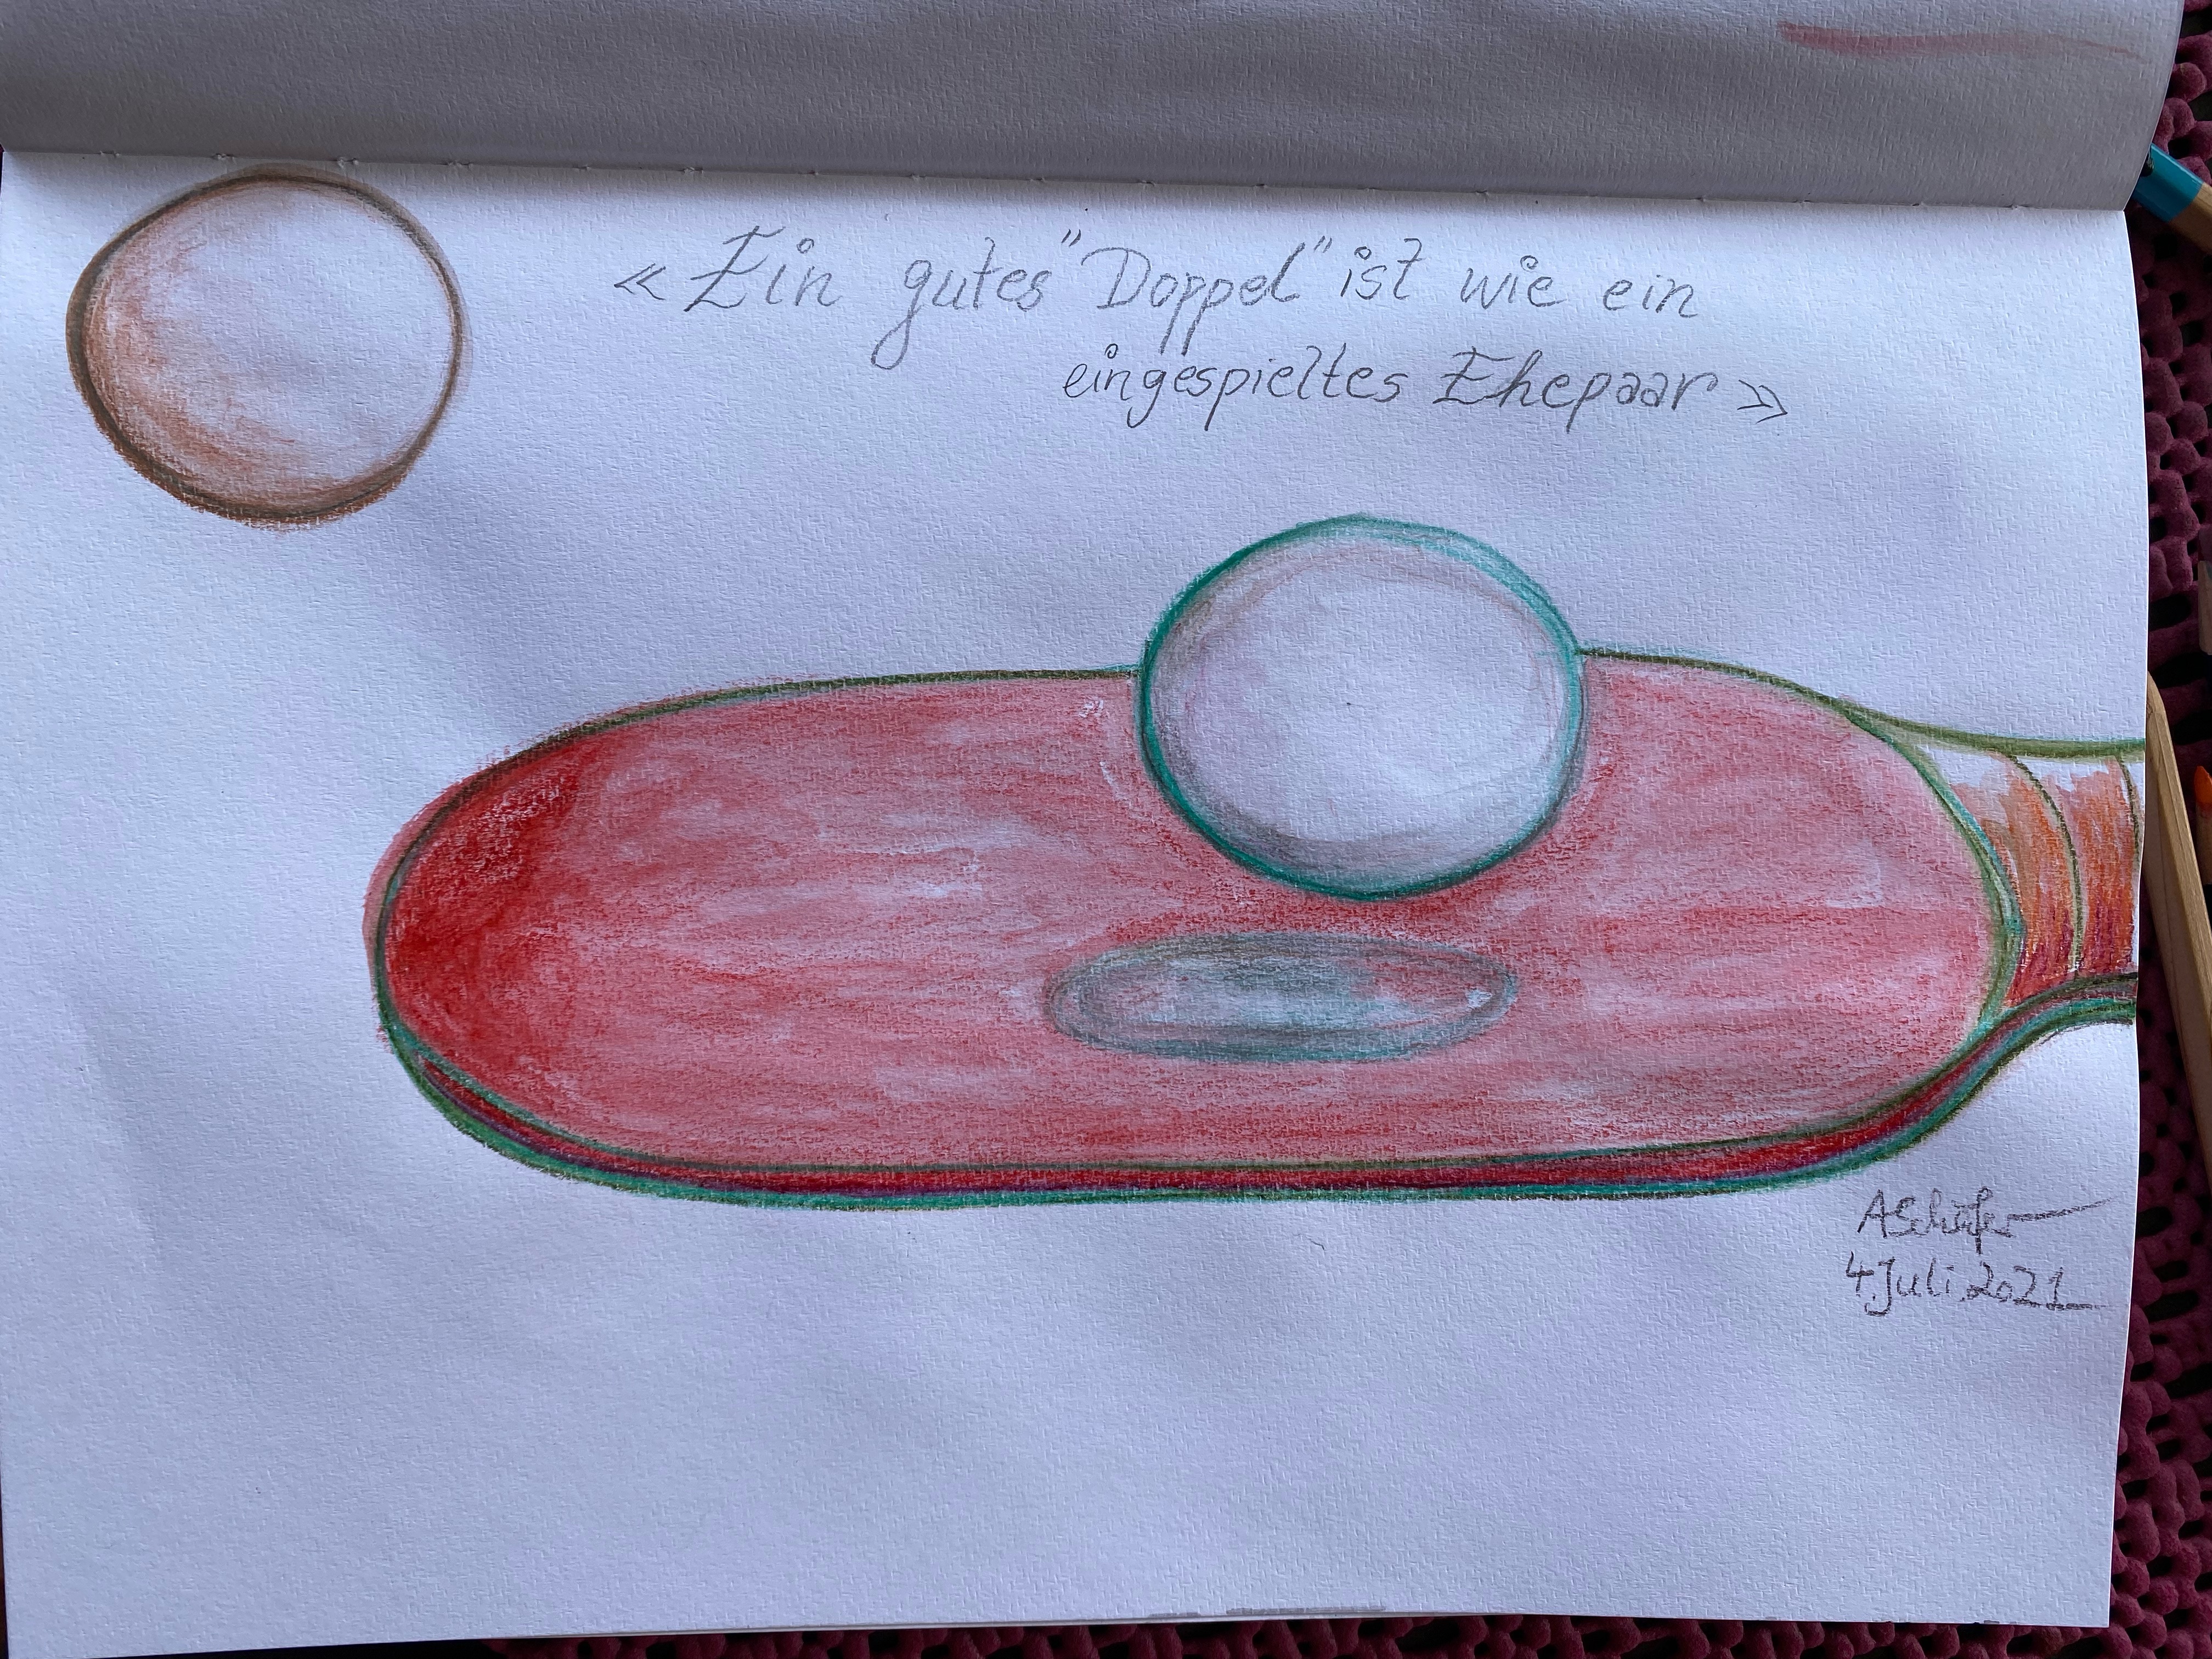 « Ein gutes "Doppel" ist wie ein
eingespieltes Ehepaar »
ASchäfer
4. Juli 2021